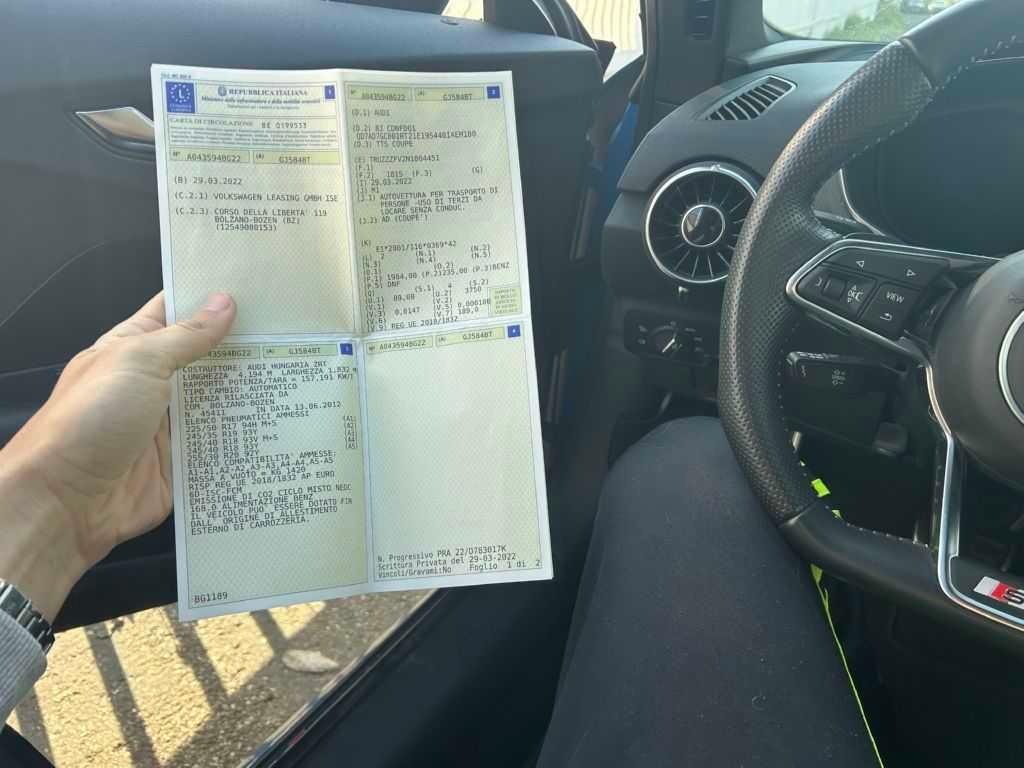 REPUBBLICA ITALIANA
1
Ministero delle infrastrutture e della mobilità sostenibili
CARTA DI CIRCOLAZIONE
N° A043594BG22 (A) GJ584BT
(B) 29.03.2022
(C.2.1) VOLKSWAGEN LEASING GMBH ISE
(C.2.3) CORSO DELLA LIBERTA' 119
BOLZANO-BOZEN (BZ)
(12549080153)
N° A043594BG22 (A) GJ584BT
2
(D.1) AUDI
(D.3) TTS COUPE
(E)
(F.1)
(F.2) 1815 (F.3) (G)
(I) 29.03.2022
(J) M1
(J.1) AUTOVETTURA PER TRASPORTO DI
PERSONE -USO DI TERZI DA
LOCARE SENZA CONDUC.
(J.2) AD (COUPE')
(K)
E1*2001/116*0369*42
(L) 2 (N.1) (N.2)
(N.3) (N.4) (N.5)
(O.1) (O.2)
(P.1) 1984,00 (P.2)235,00 (P.3)BENZ
(P.5) DNF
(Q) (S.1) 4 (S.2)
(U.1) (U.2) 3750
(V.1) (V.2)
(V.3) 0,0147 (V.5)
(V.6) (V.7) 189,0
(V.9) REG UE 2018/1832
A043594BG22 (A) GJ584BT
3
COSTRUTTORE: AUDI HUNGARIA ZRT
LUNGHEZZA 4,194 M LARGHEZZA 1,832 M
RAPPORTO POTENZA/TARA = 157,191 KW/T
TIPO CAMBIO: AUTOMATICO
LICENZA RILASCIATA DA
COM. BOLZANO-BOZEN
N. 45411 IN DATA 13.06.2012
ELENCO PNEUMATICI AMMESSI
225/50 R17 94H M+S (A1)
245/35 R19 93Y (A2)
245/40 R18 93V M+S (A3)
245/40 R18 93Y (A4)
255/30 R20 92Y (A5)
ELENCO COMPATIBILITA' AMMESSE:
A1-A1,A2-A2,A3-A3,A4-A4,A5-A5
MASSA A VUOTO = KG 1420
RISP REG UE 2018/1832 AP EURO
6D-ISC-FCM
EMISSIONE DI CO2 CICLO MISTO NEDC
168.0 ALIMENTAZIONE BENZ
IL VEICOLO PUO' ESSERE DOTATO FIN
DALL' ORIGINE DI ALLESTIMENTO
ESTERNO DI CARROZZERIA.
BG1189
N° A043594BG22 (A) GJ584BT
4
N. Progressivo PRA 22/D783017K
Scrittura Privata del 29-03-2022
Vincoli/Gravami:No Foglio 1 di 2
VIEW
S